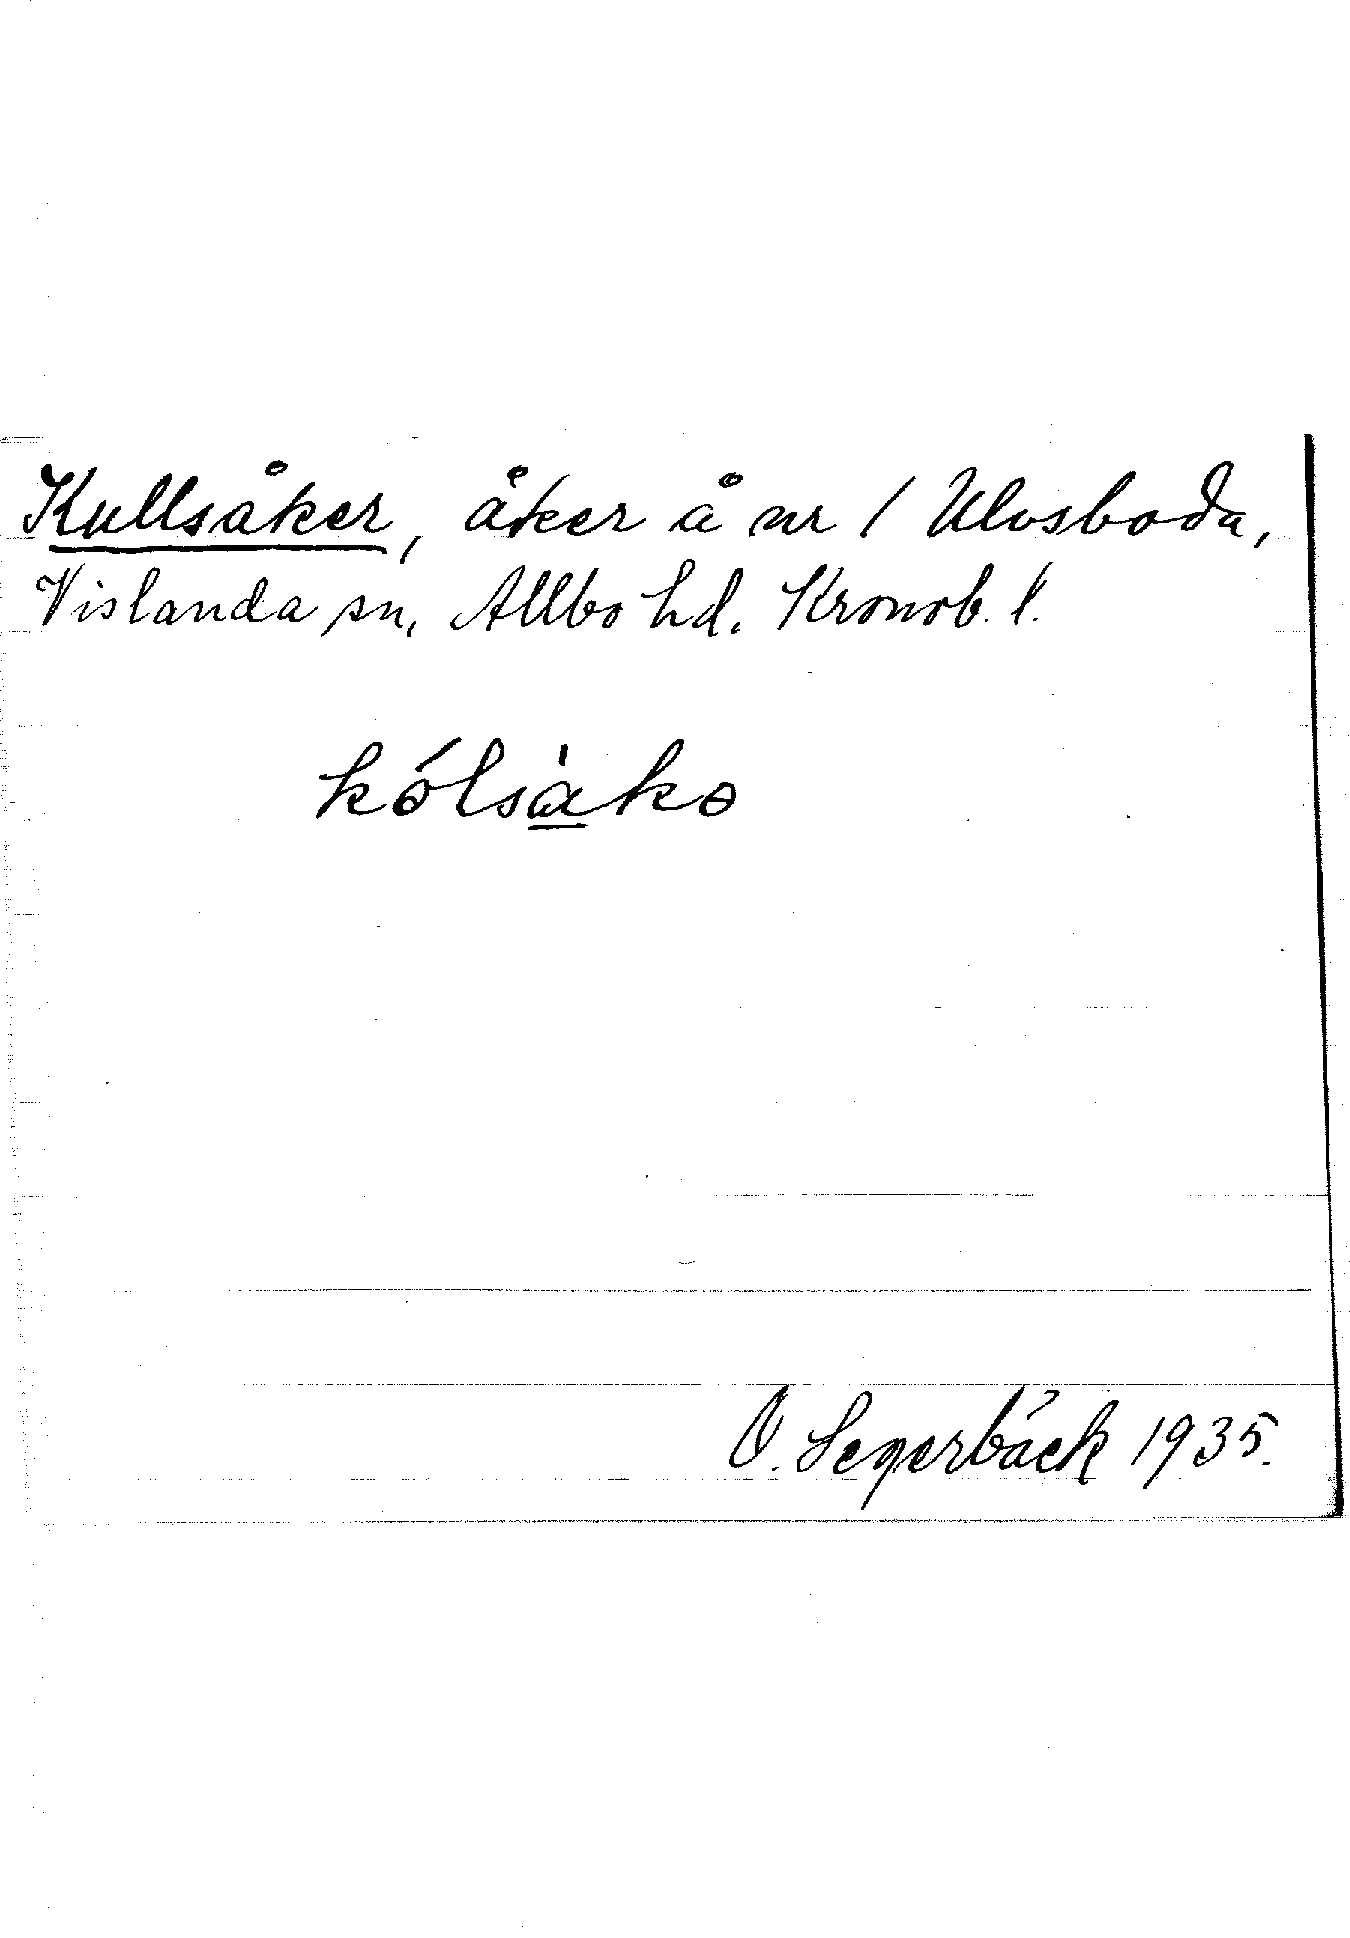 Kullsåker, åker å nr 1 Ulvsboda,
Vislanda sn, Allbo hd. Kronob. l.
kólsàkə
O. Segerbäck 1935.